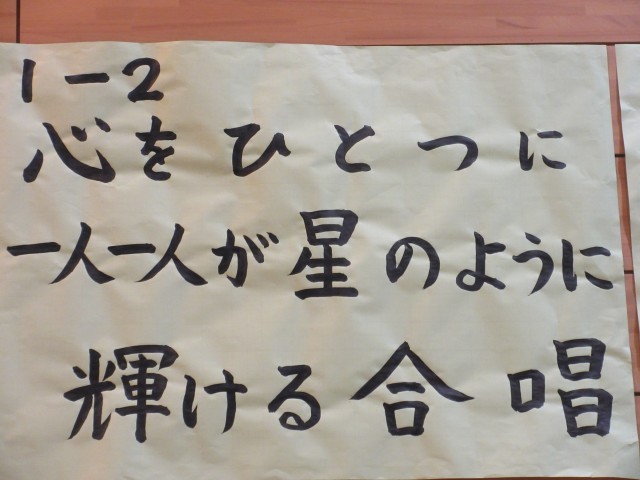 1-2
心をひとつに
一人一人が星のように
輝ける合唱